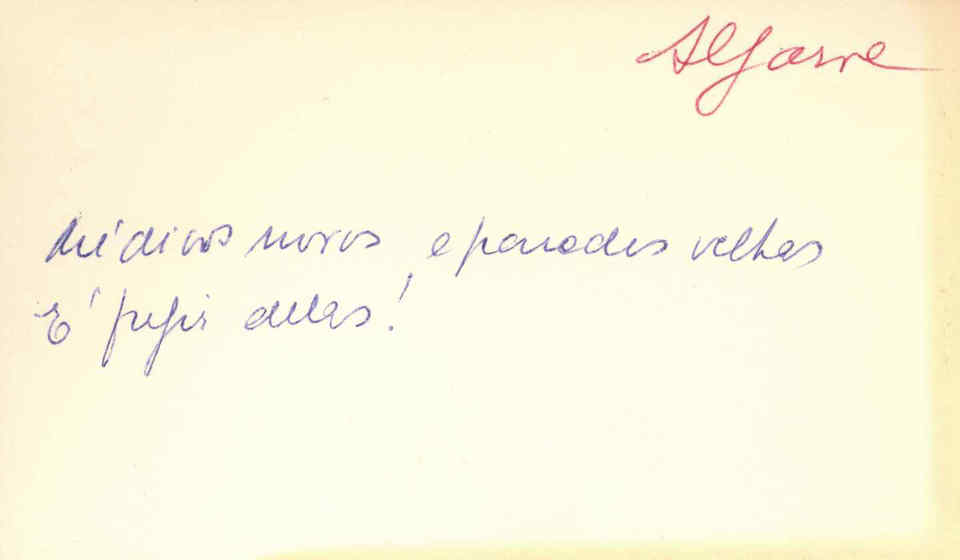 Algarve
Médicos novos, e parades velhas
É fugir delas!